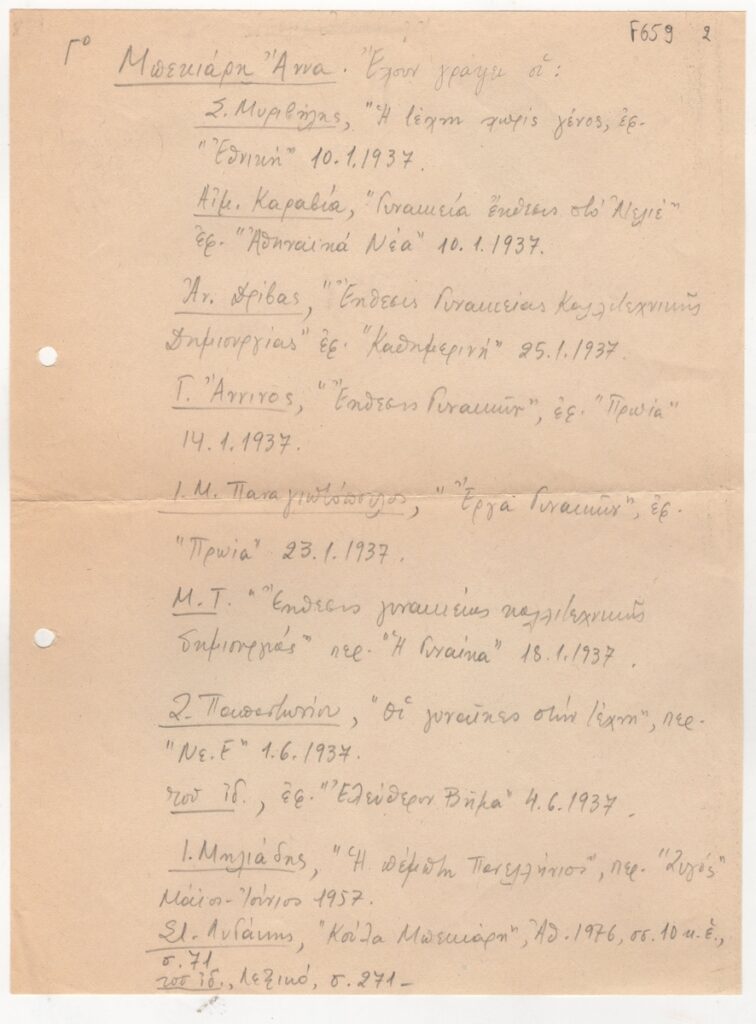 Γο
F659 2
Μπεκιάρη Ἄννα. Ἔχουν γράψει οἱ:
Σ. Μυριβήλης, "Ἡ τέχνη χωρίς γένος, ἐφ.
"Ἐθνική" 10.1.1937.
Αἰμ. Καραβία, "Γυναικεία ἔκθεσις στό Ἀτελιέ"
ἐφ. "Ἀθηναϊκά Νέα" 10.1.1937.
Ἀν. Δρίβας, "Ἔκθεσις Γυναικείας Καλλιτεχνικῆς
Δημιουργίας" ἐφ. "Καθημερινή" 25.1.1937.
Γ. Ἄννινος, "Ἔκθεσις Γυναικῶν", ἐφ. "Πρωία"
14.1.1937.
Ι. Μ. Παναγιωτόπουλος, "Ἔργα Γυναικῶν", ἐφ.
"Πρωία" 23.1.1937.
Μ. Τ. "Ἔκθεσις γυναικείας καλλιτεχνικῆς
δημιουργιάς" περ. "Ἡ Γυναίκα" 18.1.1937.
Ζ. Παπαντωνίου, "Οἱ γυναῖκες στήν τέχνη", περ.
"Νε. Ε" 1.6.1937.
τοῦ ἰδ., ἐφ. "Ἐλεύθερον Βῆμα" 4.6.1937.
Ι. Μηλιάδης, "Ἡ πέμπτη Πανελλήνιος", περ. "Ζυγός"
Μάϊος-Ἰούνιος 1957.
Στ. Λυδάκης, "Κούλα Μπεκιάρη", Ἀθ. 1976, σσ. 10 κ.ἑ.,
σ. 71
τοῦ ἰδ., Λεξικό, σ. 271 –